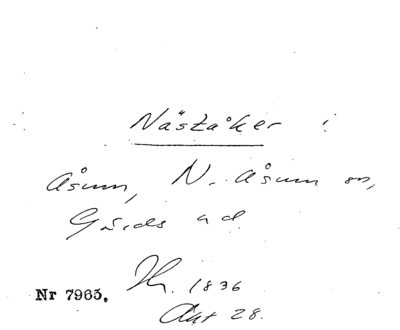 Näståker :
Åsum, N. Åsum sn,
Gärds hd.
Nr 7965. Kr. 1836
Akt 28.